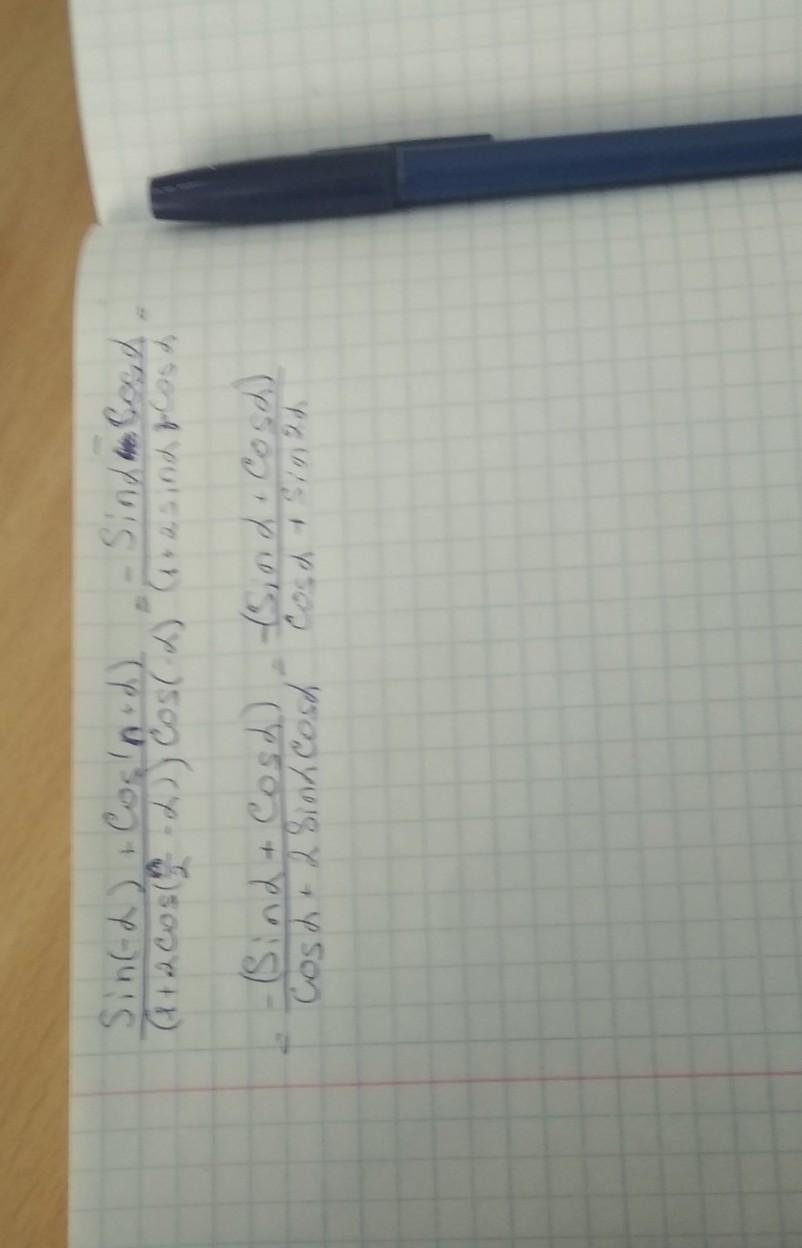 (Sin(-α) + Cos(π+α)) / ((1+2cos(π/2 -α)) Cos(-α)) = (-Sinα - Cosα) / ((1+2sinα)·Cosα) =
= (-(Sinα + Cosα)) / (Cosα + 2SinαCosα) = (-(Sinα + Cosα)) / (Cosα + Sin2α)